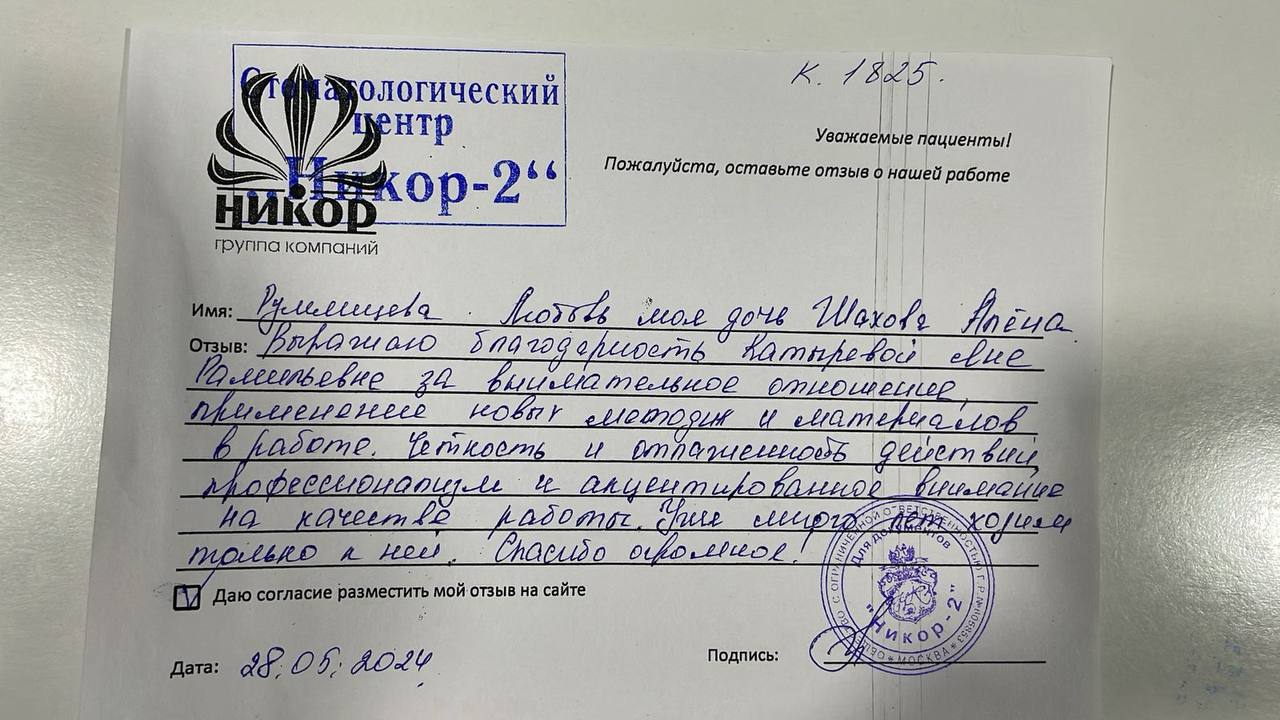 Стоматологический
центр
„Никор-2“
никор
группа компаний
к. 1825.
Уважаемые пациенты!
Пожалуйста, оставьте отзыв о нашей работе
Имя: Румянцева. Любовь моя дочь Шахова Алёна
Отзыв: Выражаю благодарность Катыревой Яне
Рамильевне за внимательное отношение,
применение новых методик и материалов
в работе. Четкость и отлаженность действий,
профессионализм и акцентированное внимание
на качестве работы. Уже много лет ходим
только к ней. Спасибо огромное!
Даю согласие разместить мой отзыв на сайте
Дата: 28.05.2024
Подпись:
Для документов
"Никор-2"
МОСКВА